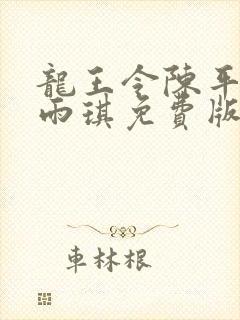 龍王令陳平
雨琪免費版
車林根